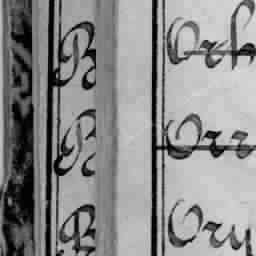 R Orh
R Orr
R Ory